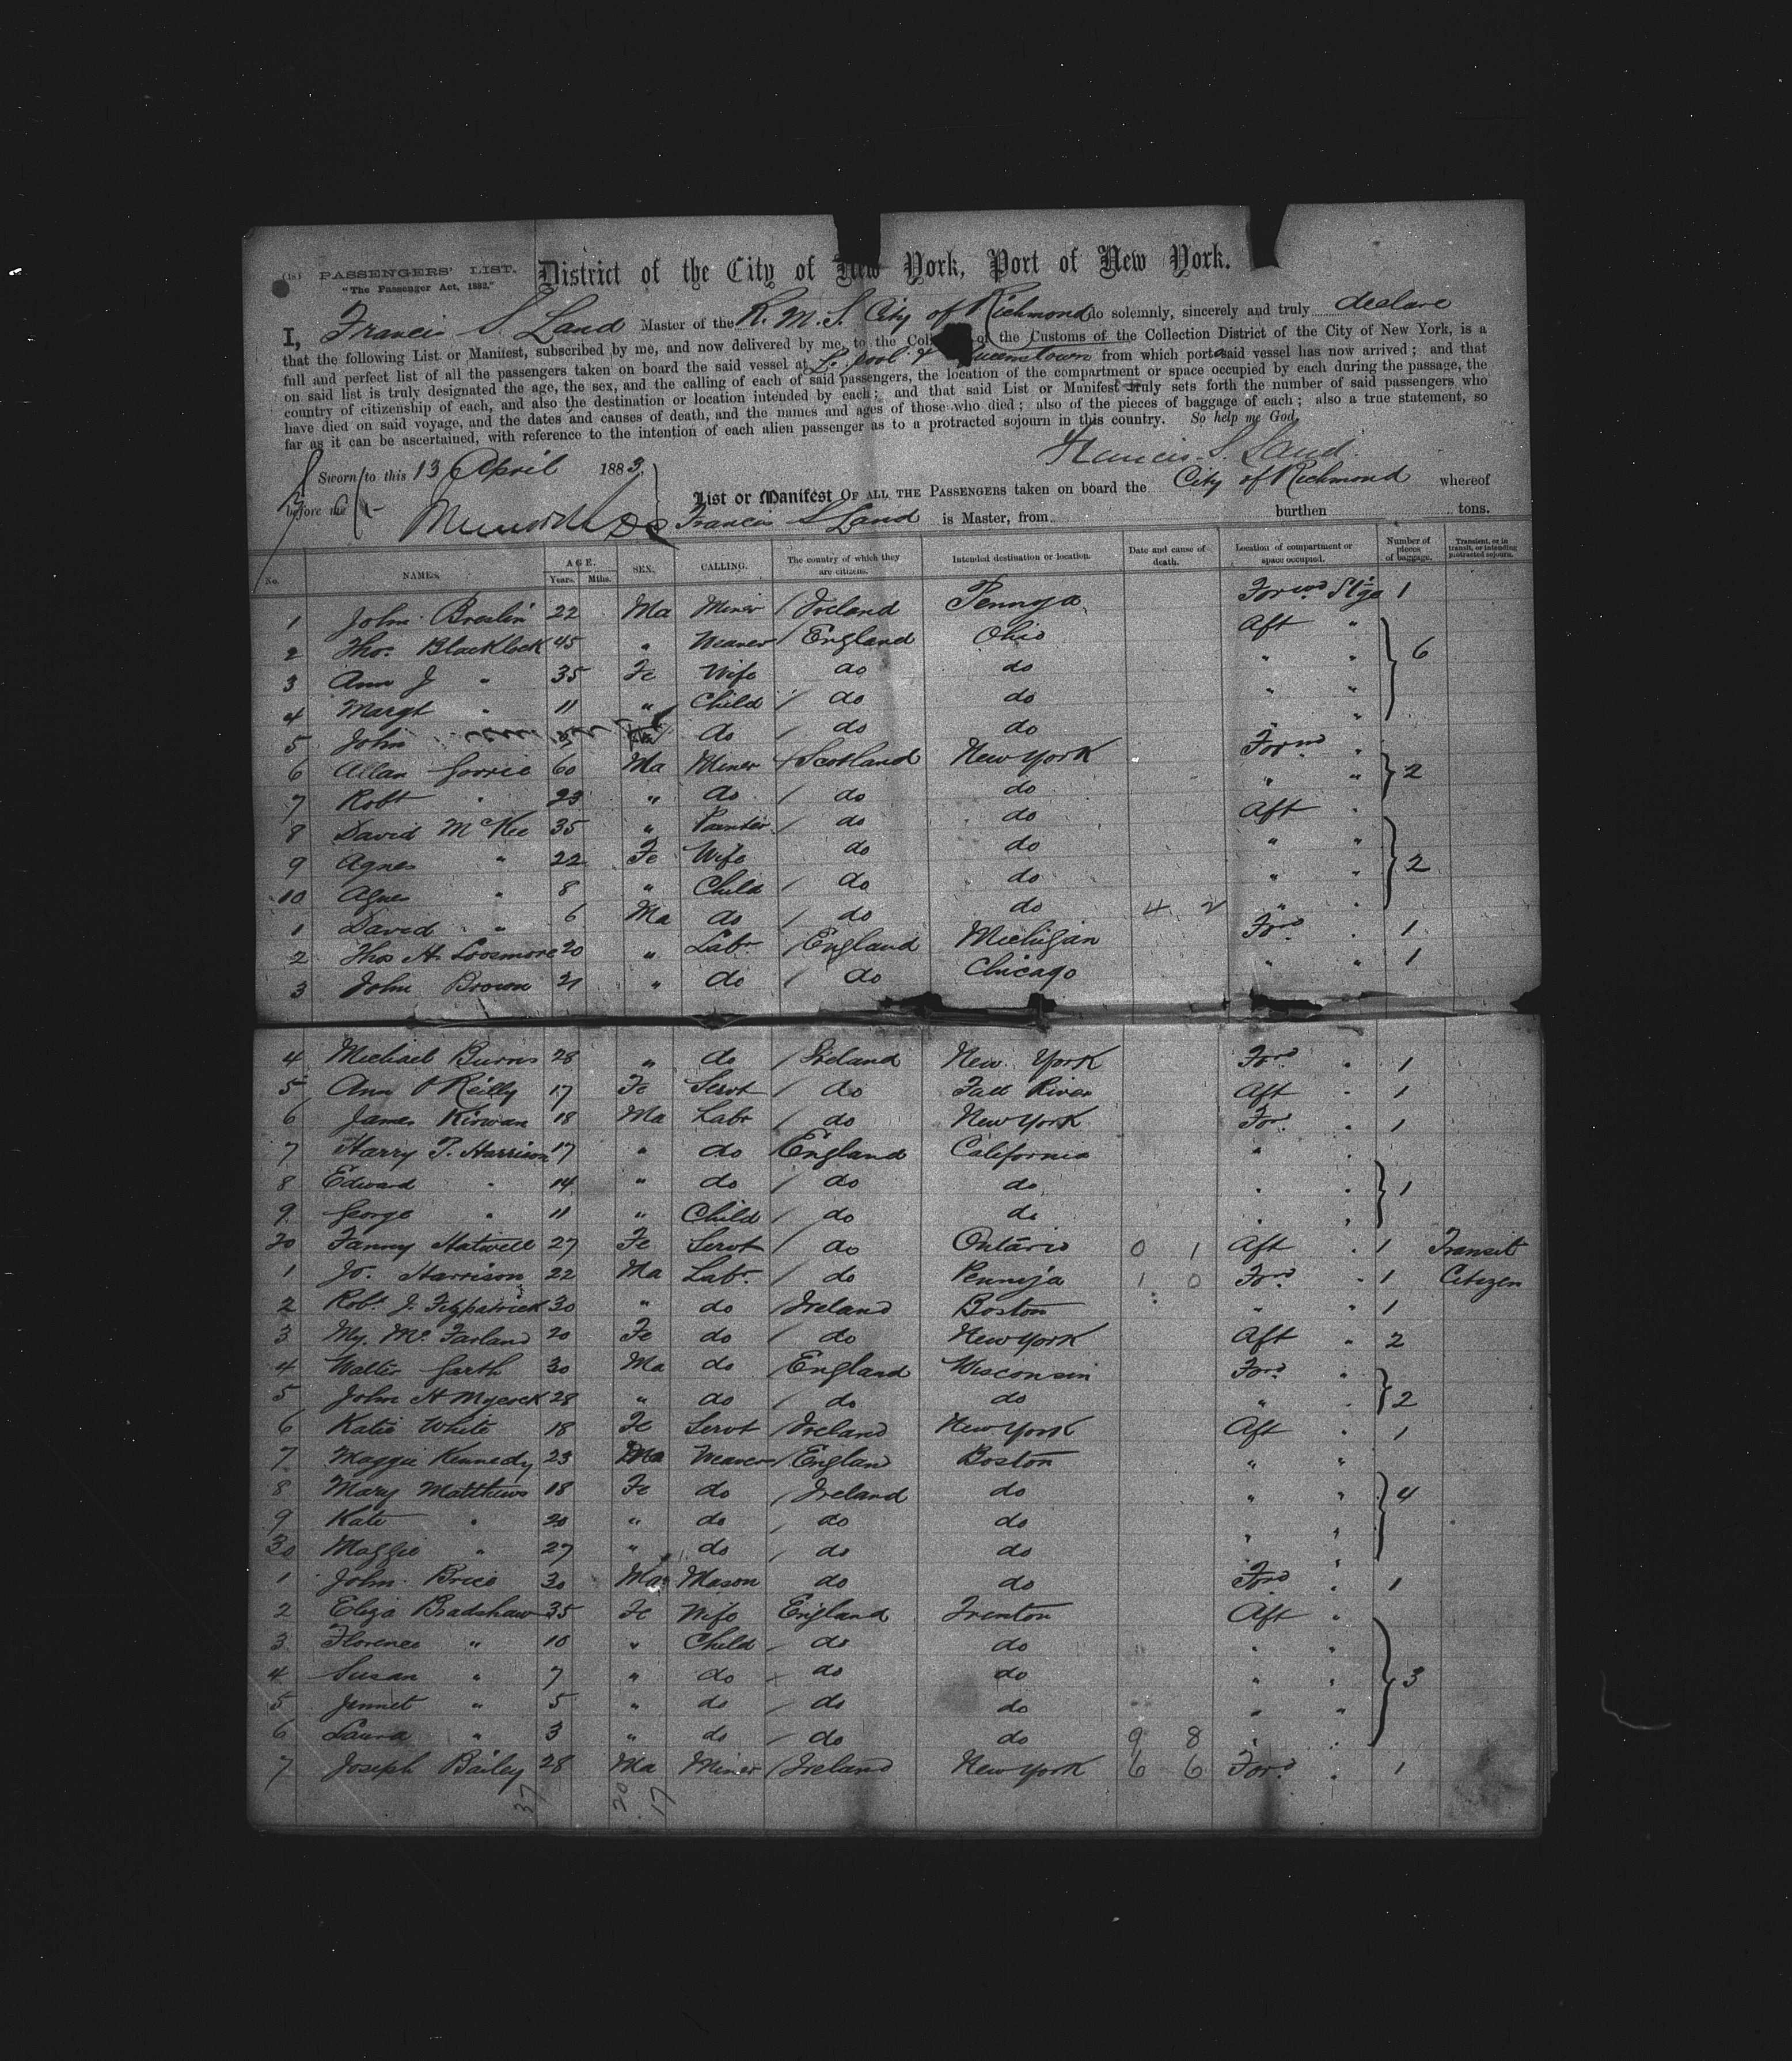 (1s) PASSENGERS' LIST.
"The Passenger Act, 1882."
District of the City of New York, Port of New York.
I, Francis S. Land Master of the R. M. S. City of Richmond do solemnly, sincerely and truly declare
that the following List or Manifest, subscribed by me, and now delivered by me, to the Col of the Customs of the Collection District of the City of New York, is a
full and perfect list of all the passengers taken on board the said vessel at L. pool & Queenstown from which port said vessel has now arrived; and that
on said list is truly designated the age, the sex, and the calling of each of said passengers, the location of the compartment or space occupied by each during the passage, the
country of citizenship of each, and also the destination or location intended by each; and that said List or Manifest truly sets forth the number of said passengers who
have died on said voyage, and the dates and causes of death, and the names and ages of those who died; also of the pieces of baggage of each; also a true statement, so
far as it can be ascertained, with reference to the intention of each alien passenger as to a protracted sojourn in this country. So help me God,
Francis. S. Land.
Sworn to this 13 April 1883
before me
List or Manifest OF ALL THE PASSENGERS taken on board the City of Richmond whereof
Francis S Land is Master, from burthen tons.
No. NAMES. AGE. Years. Mths. SEX. CALLING. The country of which they are citizens. Intended destination or location. Date and cause of death. Location of compartment or space occupied. Number of pieces of baggage. Transient, or in transit, or intending protracted sojourn.
1 John Breslin 22 Ma Miner / Ireland Pennya Forwd Stge 1
2 Thos. Blacklock 45 " Weaver / England Ohio Aft "
3 Ann J " 35 Fe Wife do do " " 6
4 Margt " 11 " Child / do do " "
5 John do / do do " "
6 Allan Gorrie 60 Ma Miner / Scotland New York Forwd "
7 Robt " 23 " do / do do " " 2
8 David McKee 35 " Painter / do do Aft "
9 Agnes " 22 Fe Wife do do " "
10 Agnes " 8 " Child / do do " " 2
1 David " 6 Ma do / do do 4 2 " "
2 Thos H. Loosmore 20 " Labr / England Michigan Ford " 1
3 John Brown 21 " do / do Chicago " " 1
4 Michael Burns 28 " do / Ireland New York Ford " 1
5 Ann O'Reilly 17 Fe Servt / do Fall River Aft " 1
6 James Kirwan 18 Ma Labr / do New York For. " 1
7 Harry T. Harrison 17 " do / England California " "
8 Edward " 14 " do / do do " " 1
9 George " 11 " Child / do do " "
20 Fanny Hatwell 27 Fe Servt / do Ontario 0 1 Aft " 1 Transit
1 Jo. Harrison 22 Ma Labr. / do Pennya 1 0 Ford " 1 Citizen
2 Robt. J. Fitzpatrick 30 " do / Ireland Boston " " 1
3 My. McFarland 20 Fe do / do New York Aft " 2
4 Walter Garth 30 Ma do / England Wisconsin Ford "
5 John H Mycock 28 " do / do do " " 2
6 Katie White 18 Fe Servt / Ireland New York Aft " 1
7 Maggie Kennedy 23 Ma Weaver / Englan Boston " "
8 Mary Matthews 18 Fe do / Ireland do " " 4
9 Kate " 20 " do / do do " "
30 Maggie " 27 " do / do do " "
1 John Brice 30 Ma Mason do do Ford " 1
2 Eliza Bradshaw 35 Fe Wife England Trenton Aft "
3 Florence " 10 " Child / do do " "
4 Susan " 7 " do do do " " 3
5 Jennet " 5 " do / do do " "
6 Laura " 3 " do / do do 9 8 " "
7 Joseph Bailey 28 Ma Miner / Ireland New York 6 6 Ford. " 1
37 20 17